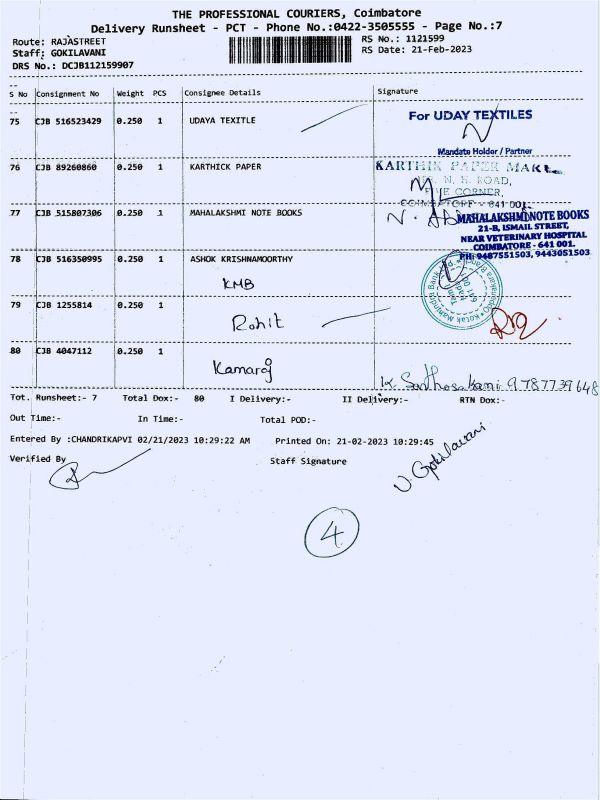 THE PROFESSIONAL COURIERS, Coimbatore
Delivery Runsheet - PCT - Phone No.:0422-3505555 - Page No.:7
Route: RAJASTREET
RS No.: 1121599
Staff: GOKILAVANI
RS Date: 21-Feb-2023
DRS No.: DCJB112159907
S No Consignment No Weight PCS Consignee Details Signature
75 CJB 516523429 0.250 1 UDAYA TEXITLE
For UDAY TEXTILES
Mandate Holder / Partner
76 CJB 89260860 0.250 1 KARTHICK PAPER
KARTHIK PAPER
N. H. ROAD,
CORNER,
COIMBATORE - 641 001.
77 CJB 515807306 0.250 1 MAHALAKSHMI NOTE BOOKS
MAHALAKSHMI NOTE BOOKS
21-B, ISMAIL STREET,
NEAR VETERINARY HOSPITAL
COIMBATORE - 641 001.
PH: 9487551503, 9443051503
78 CJB 516350995 0.250 1 ASHOK KRISHNAMOORTHY
KMB
Kotak Mahindra Bank Ltd.
79 CJB 1255814 0.250 1
Rohit
80 CJB 4047112 0.250 1
Kamaraj
9787739648
Tot. Runsheet:- 7 Total Dox:- 80 I Delivery:- II Delivery:- RTN Dox:-
Out Time:- In Time:- Total POD:-
Entered By :CHANDRIKAPVI 02/21/2023 10:29:22 AM Printed On: 21-02-2023 10:29:45
Verified By Staff Signature
V. Gokilavani
4